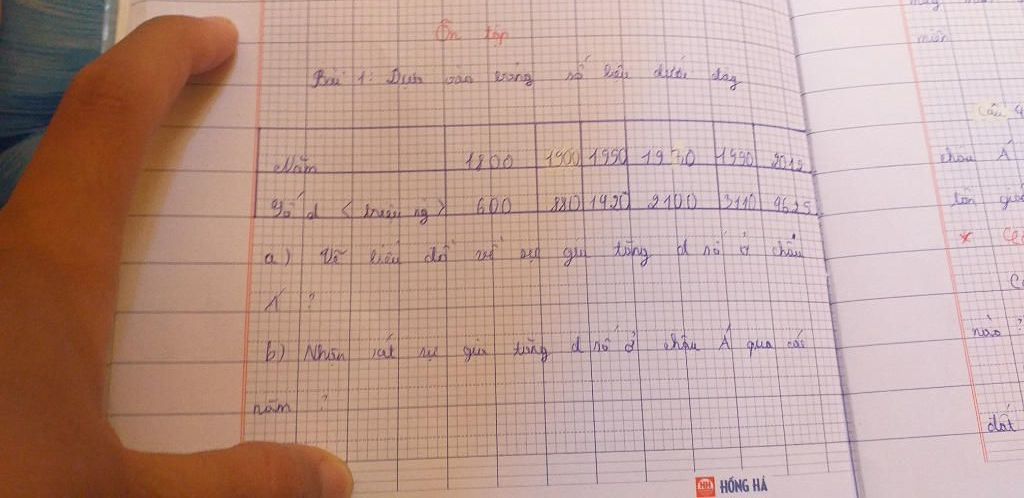 Ôn tập
Bài 1: Dựa vào bảng số liệu dưới đây
Năm 1800 1900 1950 1970 1990 2012
Số d < triệu ng > 600 880 1420 2100 3110 4625
a) Vẽ biểu đồ về sự gia tăng d số ở châu
Á ?
b) Nhận xét sự gia tăng d số ở châu Á qua các
năm ?
HỒNG HÀ
miền
Câu 4
châu Á
lớn
*
nào ?
đất